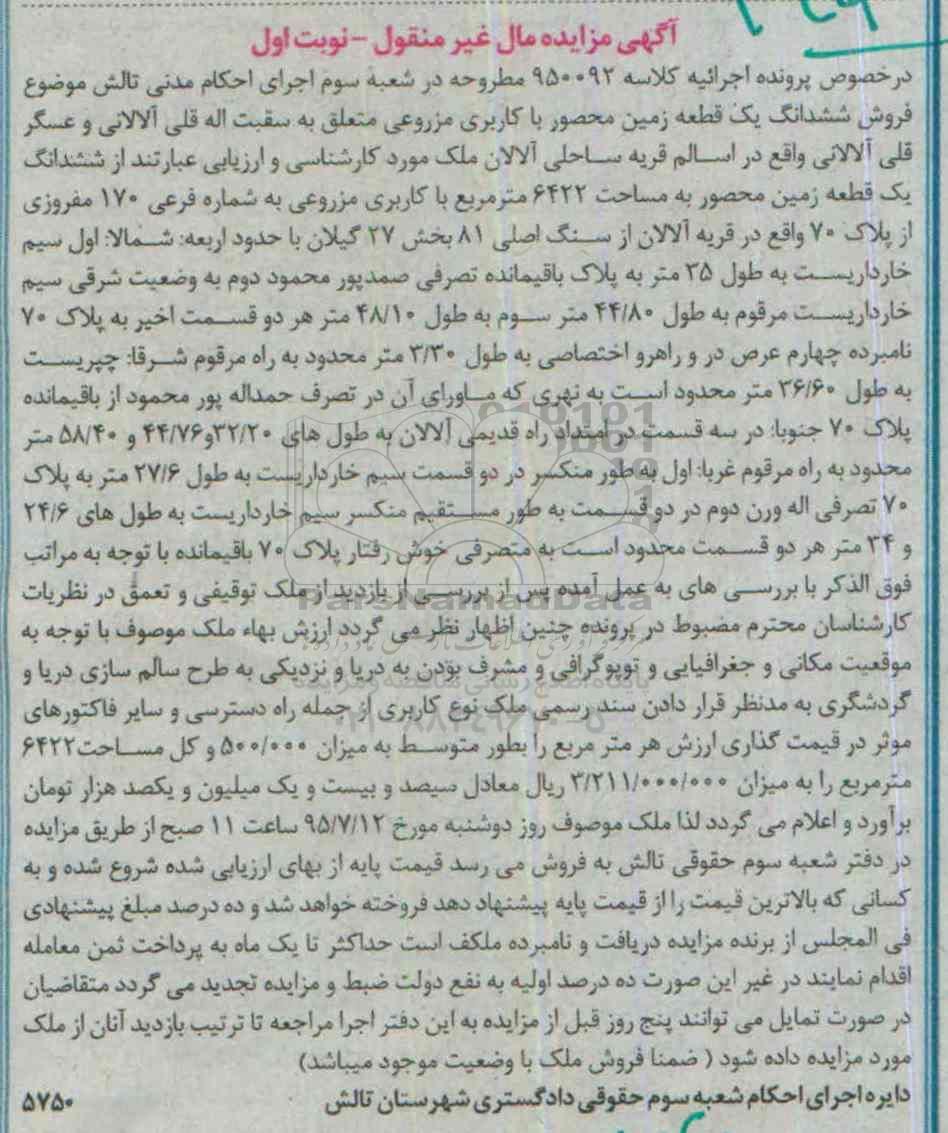 آگهی مزایده مال غیر منقول - نوبت اول
درخصوص پرونده اجرائیه کلاسه ۹۵۰۰۹۲ مطروحه در شعبه سوم اجرای احکام مدنی تالش موضوع
فروش ششدانگ یک قطعه زمین محصور با کاربری مزروعی متعلق به سقبت اله قلی آلالانی و عسگر
قلی آلالانی واقع در اسالم قریه ساحلی آلالان ملک مورد کارشناسی و ارزیابی عبارتند از ششدانگ
یک قطعه زمین محصور به مساحت ۶۴۲۲ مترمربع با کاربری مزروعی به شماره فرعی ۱۷۰ مفروزی
از پلاک ۷۰ واقع در قریه آلالان از سنگ اصلی ۸۱ بخش ۲۷ گیلان با حدود اربعه: شمالا: اول سیم
خارداریست به طول ۳۵ متر به پلاک باقیمانده تصرفی صمدپور محمود دوم به وضعیت شرقی سیم
خارداریست مرقوم به طول ۴۴/۸۰ متر سوم به طول ۴۸/۱۰ متر هر دو قسمت اخیر به پلاک ۷۰
نامبرده چهارم عرض در و راهرو اختصاصی به طول ۳/۳۰ متر محدود به راه مرقوم شرقا: چپریست
به طول ۳۶/۶۰ متر محدود است به نهری که ماورای آن در تصرف حمداله پور محمود از باقیمانده
پلاک ۷۰ جنوبا: در سه قسمت در امتداد راه قدیمی آلالان به طول های ۳۲/۲۰و۴۴/۷۶ و ۵۸/۴۰ متر
محدود به راه مرقوم غربا: اول به طور منکسر در دو قسمت سیم خارداریست به طول ۲۷/۶ متر به پلاک
۷۰ تصرفی اله ورن دوم در دو قسمت به طور مستقیم منکسر سیم خارداریست به طول های ۲۴/۶
و ۳۴ متر هر دو قسمت محدود است به متصرفی خوش رفتار پلاک ۷۰ باقیمانده با توجه به مراتب
فوق الذکر با بررسی های به عمل آمده پس از بررسی از بازدید از ملک توقیفی و تعمق در نظریات
ParsNamadData
کارشناسان محترم مضبوط در پرونده چنین اظهار نظر می گردد ارزش بهاء ملک موصوف با توجه به
موقعیت مکانی و جغرافیایی و توپوگرافی و مشرف بودن به دریا و نزدیکی به طرح سالم سازی دریا و
گردشگری به مدنظر قرار دادن سند رسمی ملک نوع کاربری از جمله راه دسترسی و سایر فاکتورهای
موثر در قیمت گذاری ارزش هر متر مربع را بطور متوسط به میزان ۵۰۰/۰۰۰ و کل مساحت۶۴۲۲
مترمربع را به میزان ۳/۲۱۱/۰۰۰/۰۰۰ ریال معادل سیصد و بیست و یک میلیون و یکصد هزار تومان
برآورد و اعلام می گردد لذا ملک موصوف روز دوشنبه مورخ ۹۵/۷/۱۲ ساعت ۱۱ صبح از طریق مزایده
در دفتر شعبه سوم حقوقی تالش به فروش می رسد قیمت پایه از بهای ارزیابی شده شروع شده و به
کسانی که بالاترین قیمت را از قیمت پایه پیشنهاد دهد فروخته خواهد شد و ده درصد مبلغ پیشنهادی
فی المجلس از برنده مزایده دریافت و نامبرده ملکف است حداکثر تا یک ماه به پرداخت ثمن معامله
اقدام نمایند در غیر این صورت ده درصد اولیه به نفع دولت ضبط و مزایده تجدید می گردد متقاضیان
در صورت تمایل می توانند پنج روز قبل از مزایده به این دفتر اجرا مراجعه تا ترتیب بازدید آنان از ملک
مورد مزایده داده شود ( ضمنا فروش ملک با وضعیت موجود میباشد)
دایره اجرای احکام شعبه سوم حقوقی دادگستری شهرستان تالش
۵۷۵۰